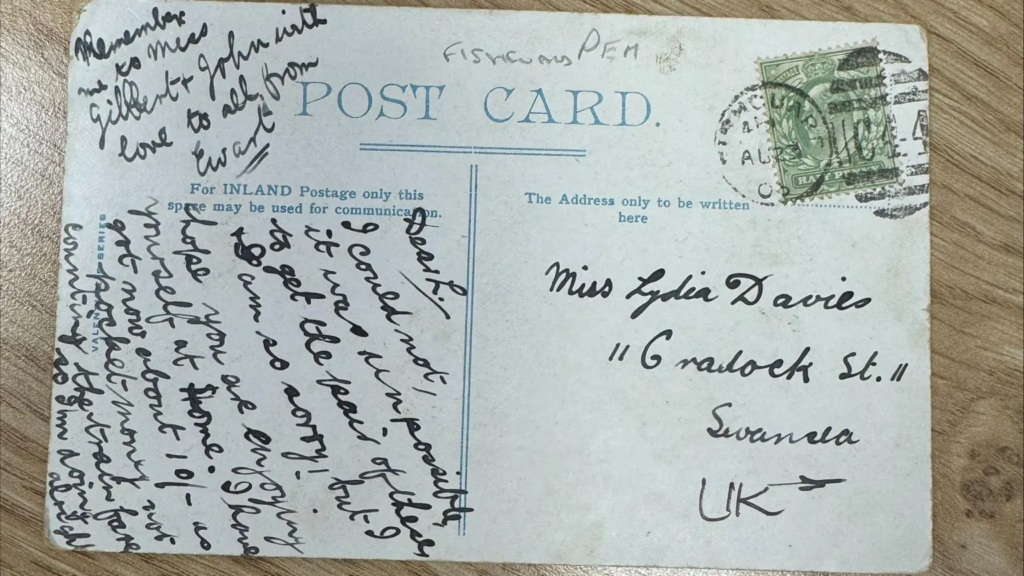 Remember
me to Miss
Gilbert & John with
love to all from
Ewart
POST CARD.
FISHGUARD PEM
For INLAND Postage only this
space may be used for communication.
The Address only to be written
here
Dear L.
I could not,
it was impossible,
to get the pair of these
I am so sorry! but I
hope you are enjoying
yourself at home. I have
got now about 10/- as
pocket-money not
counting the train fare
so I'm doing alright
VALENTINES SERIES
Miss Lydia Davies
"Cradock St."
Swansea
UK
AU